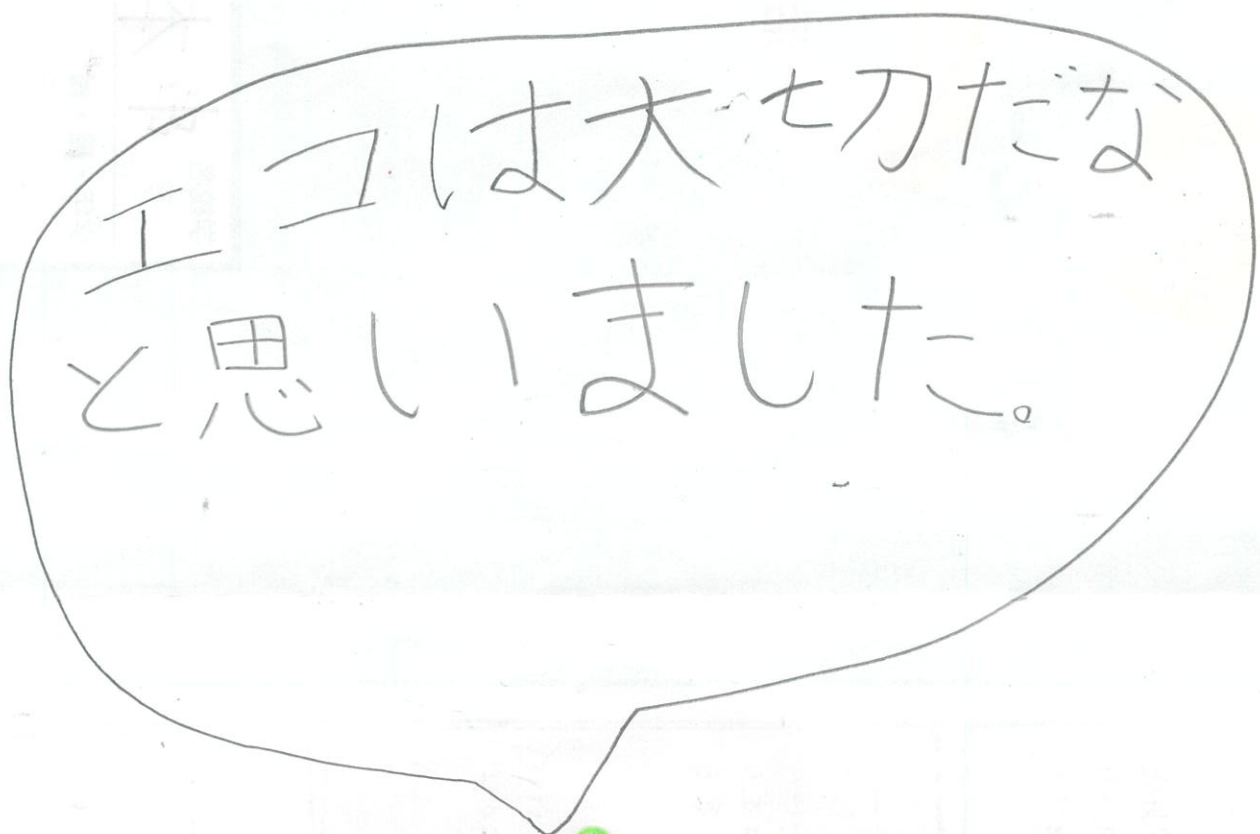 エコは大切だな
と思いました。